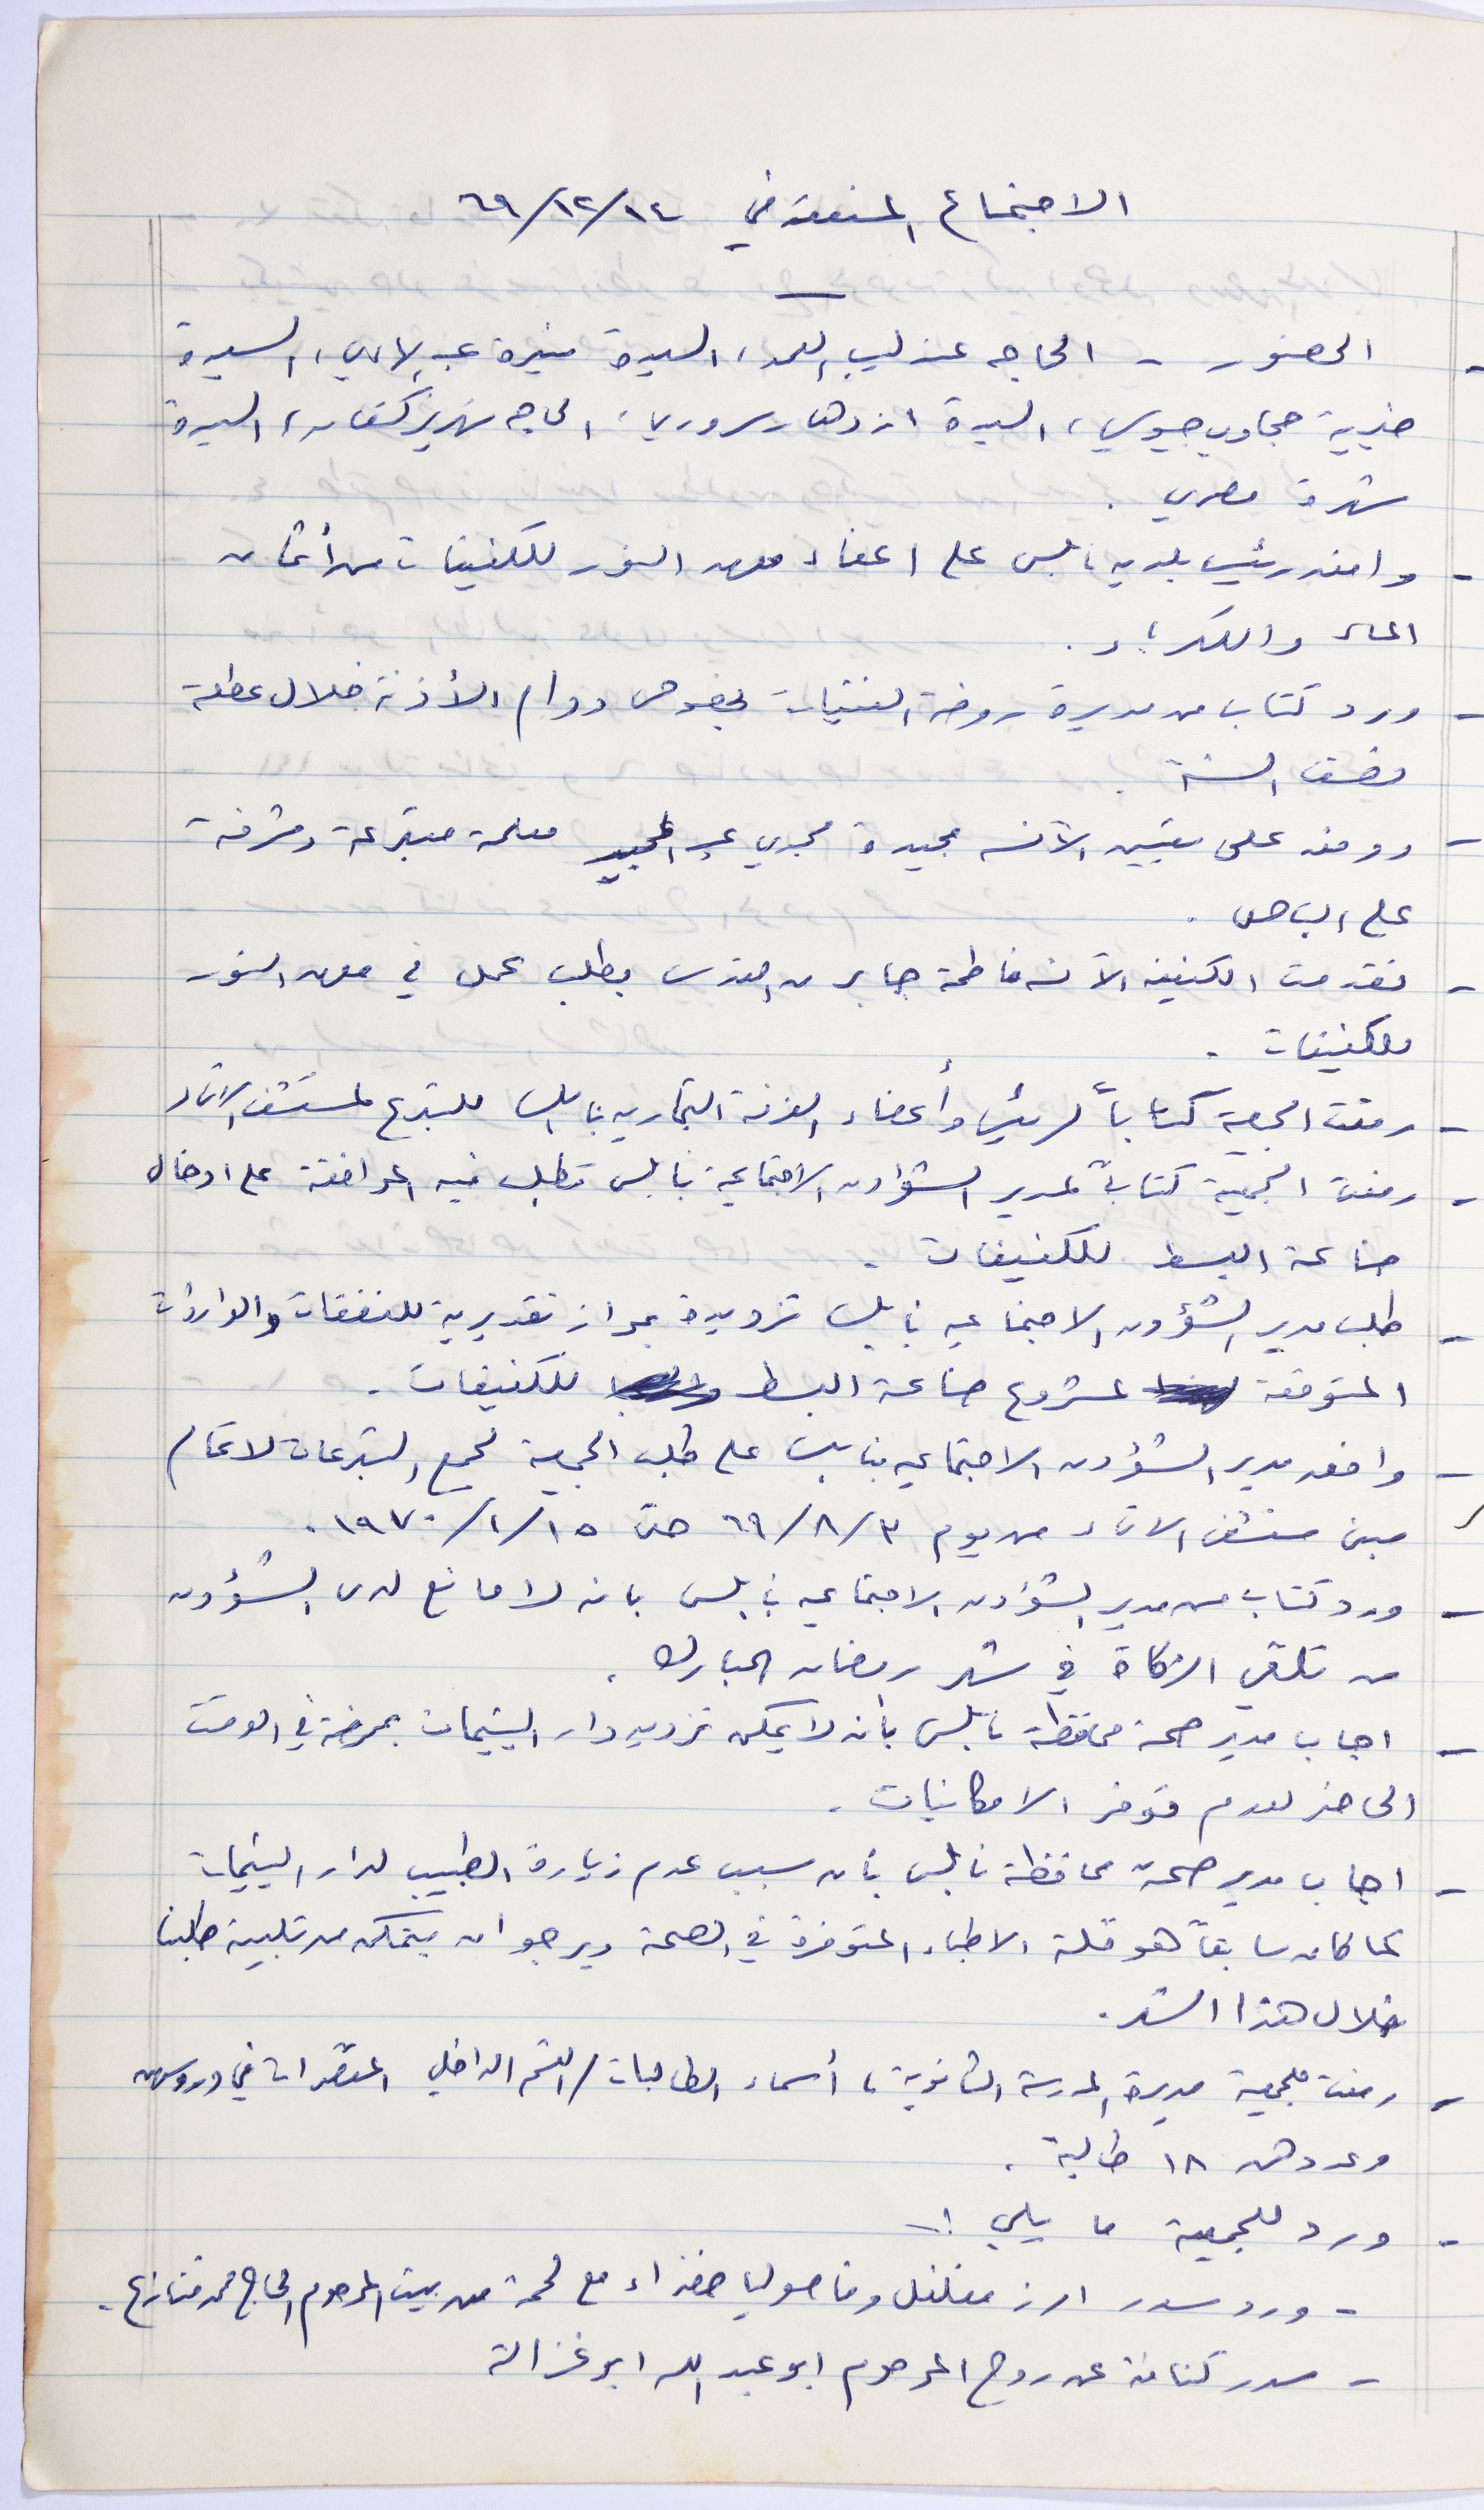 الاجتماع المنعقد في ٦٩/١٢/١٤
- الحضور - الحاجه عندليب العمد، السيدة منيرة عبد الهادي، السيدة
خيرية حجاوي جيوسي، السيدة ازدهار سروريا، الحاجه نهريز كنعان، السيدة
شهرة مصري .
- وافق رئيس بلديه نابلس على اعفاء معهد النور للكفيفات من أثمان
الماء والكهرباء .
- ورد كتاب من مديرة روضة الفتيات بخصوص دوام الأذنة خلال عطلة
نصف السنة .
- ووفق على تعيين الآنسه مجيدة مجدي عبد المجيد معلمة متبرعة ومشرفة
على الباص .
- تقدمت الكفيفه الآنسه فاطمة جابر من القدس بطلب عمل في معهد النور
للكفيفات .
- رفعت الجمعية كتاباً لرئيس وأعضاء الغرفة التجاريه بنابلس للتبرع لمستشفى الاتحاد
- رفعت الجمعية كتاباً لمدير الشؤون الاجتماعية بنابلس تطلب فيه الموافقة على ادخال
صناعة البسط للكفيفات .
- طلب مدير الشؤون الاجتماعيه بنابلس تزويده بموازنه تقديرية للنفقات والواردات
المتوقعة لمشروع صناعة البسط للكفيفات .
- وافق مدير الشؤون الاجتماعيه بنابلس على طلب الجمعية لجمع التبرعات لاتمام
مبنى مستشفى الاتحاد من يوم ٦٩/٨/٣ حتى ١٩٧٠/١/١٥ .
- ورد كتاب من مدير الشؤون الاجتماعيه بنابلس بانه لا مانع لدى الشؤون
من تلقي الزكاة في شهر رمضان المبارك .
- اجاب مدير صحة محافظة نابلس بأنه لا يمكن تزويد دار اليتيمات بممرضة في الوقت
الحاضر لعدم توفر الامكانيات .
- اجاب مدير صحة محافظة نابلس بأن سبب عدم زيارة الطبيب لدار اليتيمات
كما كان سابقاً هو قلة الاطباء المتوفرة في الصحة ويرجو ان يتمكن من تلبية طلبنا
خلال هذا الشهر .
- رفعت للجمعية مديرة المدرسة الثانوية، أسماء الطالبات / القسم الداخلي المقصرات في دروسهن
وعددهن ١٨ طالبة .
- ورد للجمعية ما يلي :-
- ورد سدر ارز مفلفل وفاصوليا خضراء مع لحمة من بيت المرحوم الحاج محمد قنازع .
- سدر كنافة عن روح المرحوم ابو عبد الله ابو غزالة